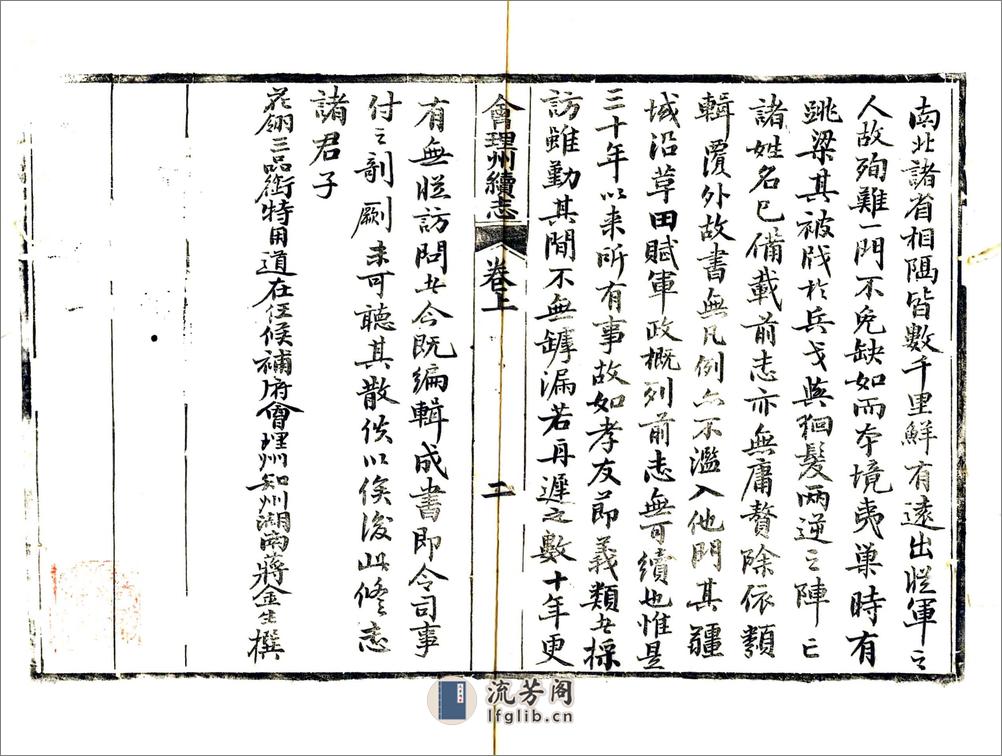 南北諸省相隔皆數千里鮮有遠出從軍之
人故殉難一門不免缺如而本境夷巢時有
跳梁其被戕於兵戈與猖髮兩逆之陣亡
諸姓名已備載前志亦無庸贅除依類
輯覆外故書無凡例亦不濫入他門其疆
域沿革田賦軍政概列前志無可續也惟是
三十年以来所有事故如孝友節義類如採
訪雖勤其間不無罅漏若再遲之數十年更
會理州續志 卷上 二
有無從訪問如今既編輯成書即令司事
付之剞劂未可聽其散佚以俟後此修志
諸君子
花翎三品銜特用道在任候補府會理州知州湖南蔣金生撰
流芳阁
lfglib.cn